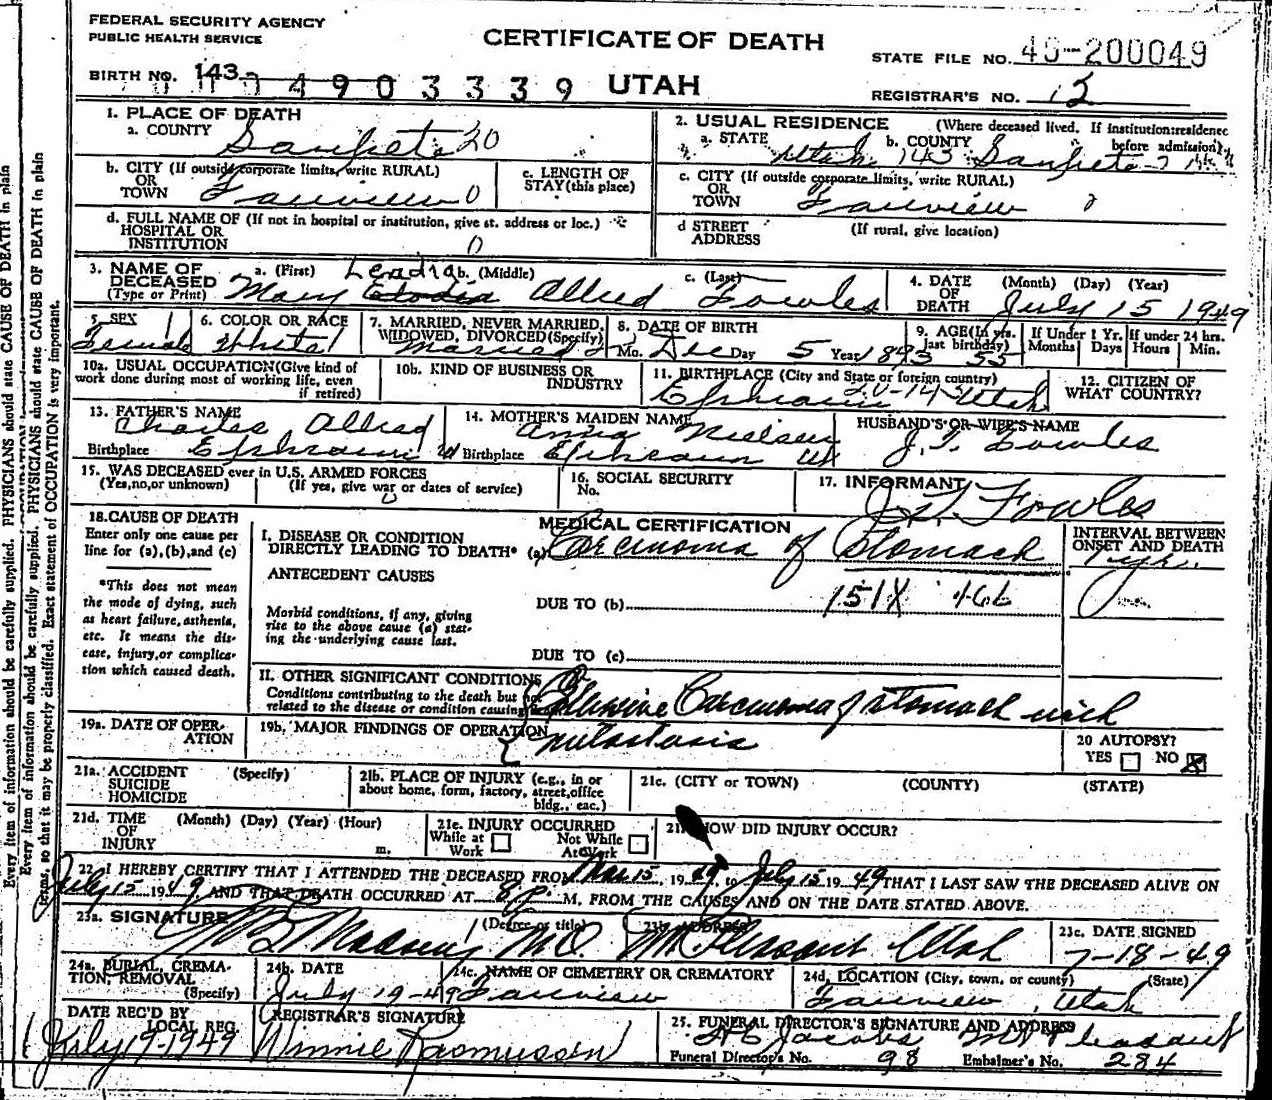 FEDERAL SECURITY AGENCY
PUBLIC HEALTH SERVICE
CERTIFICATE OF DEATH
STATE FILE NO. 49-200049
BIRTH NO. 143
4903339 UTAH
REGISTRAR'S NO. 12
1. PLACE OF DEATH
a. COUNTY Sanpete 20
2. USUAL RESIDENCE (Where deceased lived. If institution: residence before admission)
a. STATE Utah 143 b. COUNTY Sanpete
b. CITY (If outside corporate limits, write RURAL) OR TOWN Fairview 0
c. LENGTH OF STAY (this place)
c. CITY (If outside corporate limits, write RURAL) OR TOWN Fairview
d. FULL NAME OF (If not in hospital or institution, give st. address or loc.) HOSPITAL OR INSTITUTION 0
d STREET ADDRESS (If rural, give location)
3. NAME OF DECEASED (Type or Print)
a. (First) b. (Middle) c. (Last)
Mary Leadia Allred Fowles
4. DATE OF DEATH (Month) (Day) (Year)
July 15 1949
5. SEX Female
6. COLOR OR RACE White
7. MARRIED, NEVER MARRIED, WIDOWED, DIVORCED (Specify) Married
8. DATE OF BIRTH
Mo. Dec Day 5 Year 1893
9. AGE (In yrs. last birthday) 55
If Under 1 Yr. Months Days
If under 24 hrs. Hours Min.
10a. USUAL OCCUPATION (Give kind of work done during most of working life, even if retired)
10b. KIND OF BUSINESS OR INDUSTRY
11. BIRTHPLACE (City and State or foreign country)
Ephraim Utah
12. CITIZEN OF WHAT COUNTRY?
13. FATHER'S NAME
Charles Allred
Birthplace Ephraim
14. MOTHER'S MAIDEN NAME
Anna Nielsen
Birthplace Ephraim Ut
HUSBAND'S OR WIFE'S NAME
J. F. Fowles
15. WAS DECEASED ever in U.S. ARMED FORCES
(Yes, no, or unknown) (If yes, give war or dates of service)
0
16. SOCIAL SECURITY No.
17. INFORMANT
J. F. Fowles
18. CAUSE OF DEATH
Enter only one cause per line for (a), (b), and (c)
*This does not mean the mode of dying, such as heart failure, asthenia, etc. It means the disease, injury, or complication which caused death.
MEDICAL CERTIFICATION
I. DISEASE OR CONDITION DIRECTLY LEADING TO DEATH* (a) Carcinoma of Stomach
INTERVAL BETWEEN ONSET AND DEATH
1 yr.
ANTECEDENT CAUSES
Morbid conditions, if any, giving rise to the above cause (a) stating the underlying cause last.
DUE TO (b) 151X
DUE TO (c)
II. OTHER SIGNIFICANT CONDITIONS
Conditions contributing to the death but not related to the disease or condition causing
Carcinoma of stomach with
metastasis
19a. DATE OF OPERATION
19b. MAJOR FINDINGS OF OPERATION
20 AUTOPSY?
YES NO
21a. ACCIDENT SUICIDE HOMICIDE (Specify)
21b. PLACE OF INJURY (e.g., in or about home, form, factory, street, office bldg., eac.)
21c. (CITY or TOWN) (COUNTY) (STATE)
21d. TIME OF INJURY (Month) (Day) (Year) (Hour) m.
21e. INJURY OCCURRED
While at Work Not While At Work
21f. HOW DID INJURY OCCUR?
22. I HEREBY CERTIFY THAT I ATTENDED THE DECEASED FROM Mar 15, 1949, to July 15 1949 THAT I LAST SAW THE DECEASED ALIVE ON
July 15 1949, AND THAT DEATH OCCURRED AT 8 P. M. FROM THE CAUSES AND ON THE DATE STATED ABOVE.
23a. SIGNATURE (Degree or title)
Madsen M.D.
23b. ADDRESS
Mt Pleasant Utah
23c. DATE SIGNED
7-18-49
24a. BURIAL, CREMATION, REMOVAL (Specify)
24b. DATE
July 19-49
24c. NAME OF CEMETERY OR CREMATORY
Fairview
24d. LOCATION (City, town, or county) (State)
Fairview, Utah
DATE REC'D BY LOCAL REG.
July 19-1949
REGISTRAR'S SIGNATURE
Winnie Rasmussen
25. FUNERAL DIRECTOR'S SIGNATURE AND ADDRESS
Jacobs Mt Pleasant
Funeral Director's No. 98 Embalmer's No. 284
Every item of information should be carefully supplied. PHYSICIANS should state CAUSE OF DEATH in plain
Every item of information should be carefully supplied. PHYSICIANS should state CAUSE OF DEATH in plain
terms, so that it may be properly classified. Exact statement of OCCUPATION is very important.